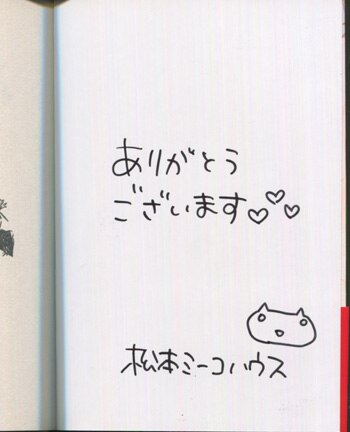 ありがとう
ございます♡♡♡
松本ミーコハウス